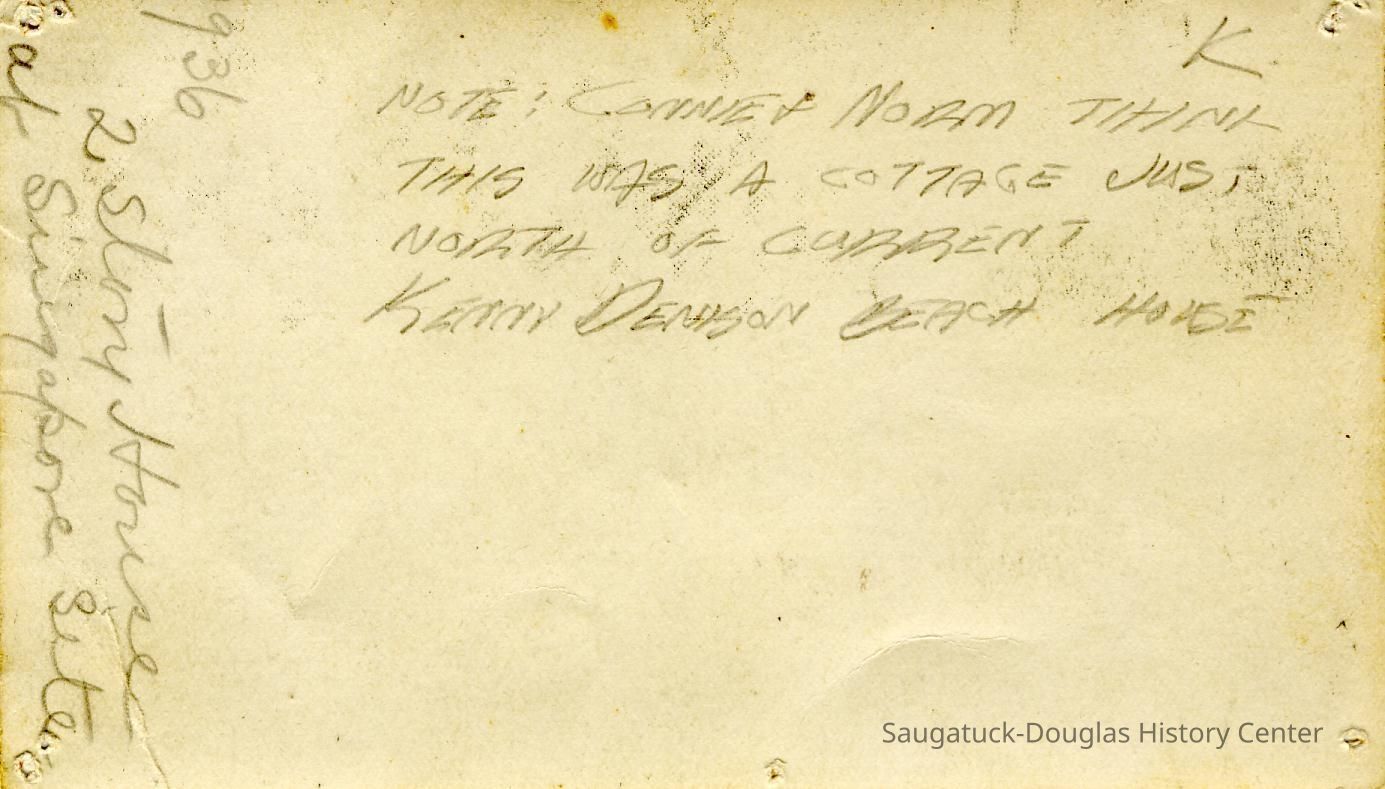 K
NOTE: CONNIE & NORM THINK
THIS WAS A COTTAGE JUST
NORTH OF CURRENT
KENNY DENISON BEACH HOUSE
1936
2 Story House
at Singapore Site
Saugatuck-Douglas History Center